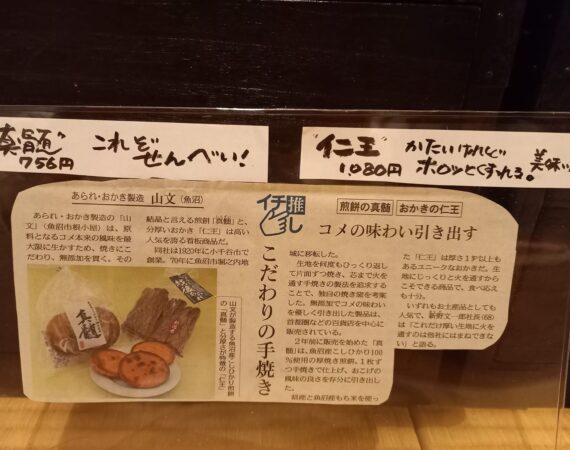 "真髄"
756円
これぞ
せんべい!
"仁王"
1080円
かたいけれど
ホロッとくずれる。
美味
あられ・おかき製造 山文(魚沼)
イチ推し
煎餅の真髄 おかきの仁王
コメの味わい引き出す
こだわりの手焼き
あられ・おかき製造の「山
文」(魚沼市根小屋)は、原
料となるコメ本来の風味を最
大限に生かすため、焼きにこ
だわり、無添加を貫く。その
結晶と言える煎餅「真髄」と、
分厚いおかき「仁王」は高い
人気を誇る看板商品だ。
同社は1920年に小千谷市で
創業。70年に魚沼市堀之内地
域に移転した。
生地を何度もひっくり返し
て片面ずつ焼き、芯まで火を
通す手焼きの製法を追求する
ことで、独自の焼き窯を考案
した。無添加でコメの味わい
を優しく引き出した製品は、
首都圏などの百貨店を中心に
販売されている。
2年前に販売を始めた「真
髄」は、魚沼産こしひかり100
%使用の厚焼き煎餅。1枚ず
つ手焼きで仕上げ、おこげの
風味の良さを存分に引き出し
た。
県産と魚沼産もち米を使っ
た「仁王」は厚さ1㌢以上も
あるユニークなおかきだ。生
地にじっくりと火を通すから
こそできる商品で、食べ応え
も十分。
いずれもお土産品としても
人気で、新野文一郎社長(68)
は「これだけ厚い生地に火を
通すのは他社にはまねできな
い」と語る。
山文が製造する魚沼産こしひかり煎餅
の「真髄」と分厚さが特徴の「仁王」